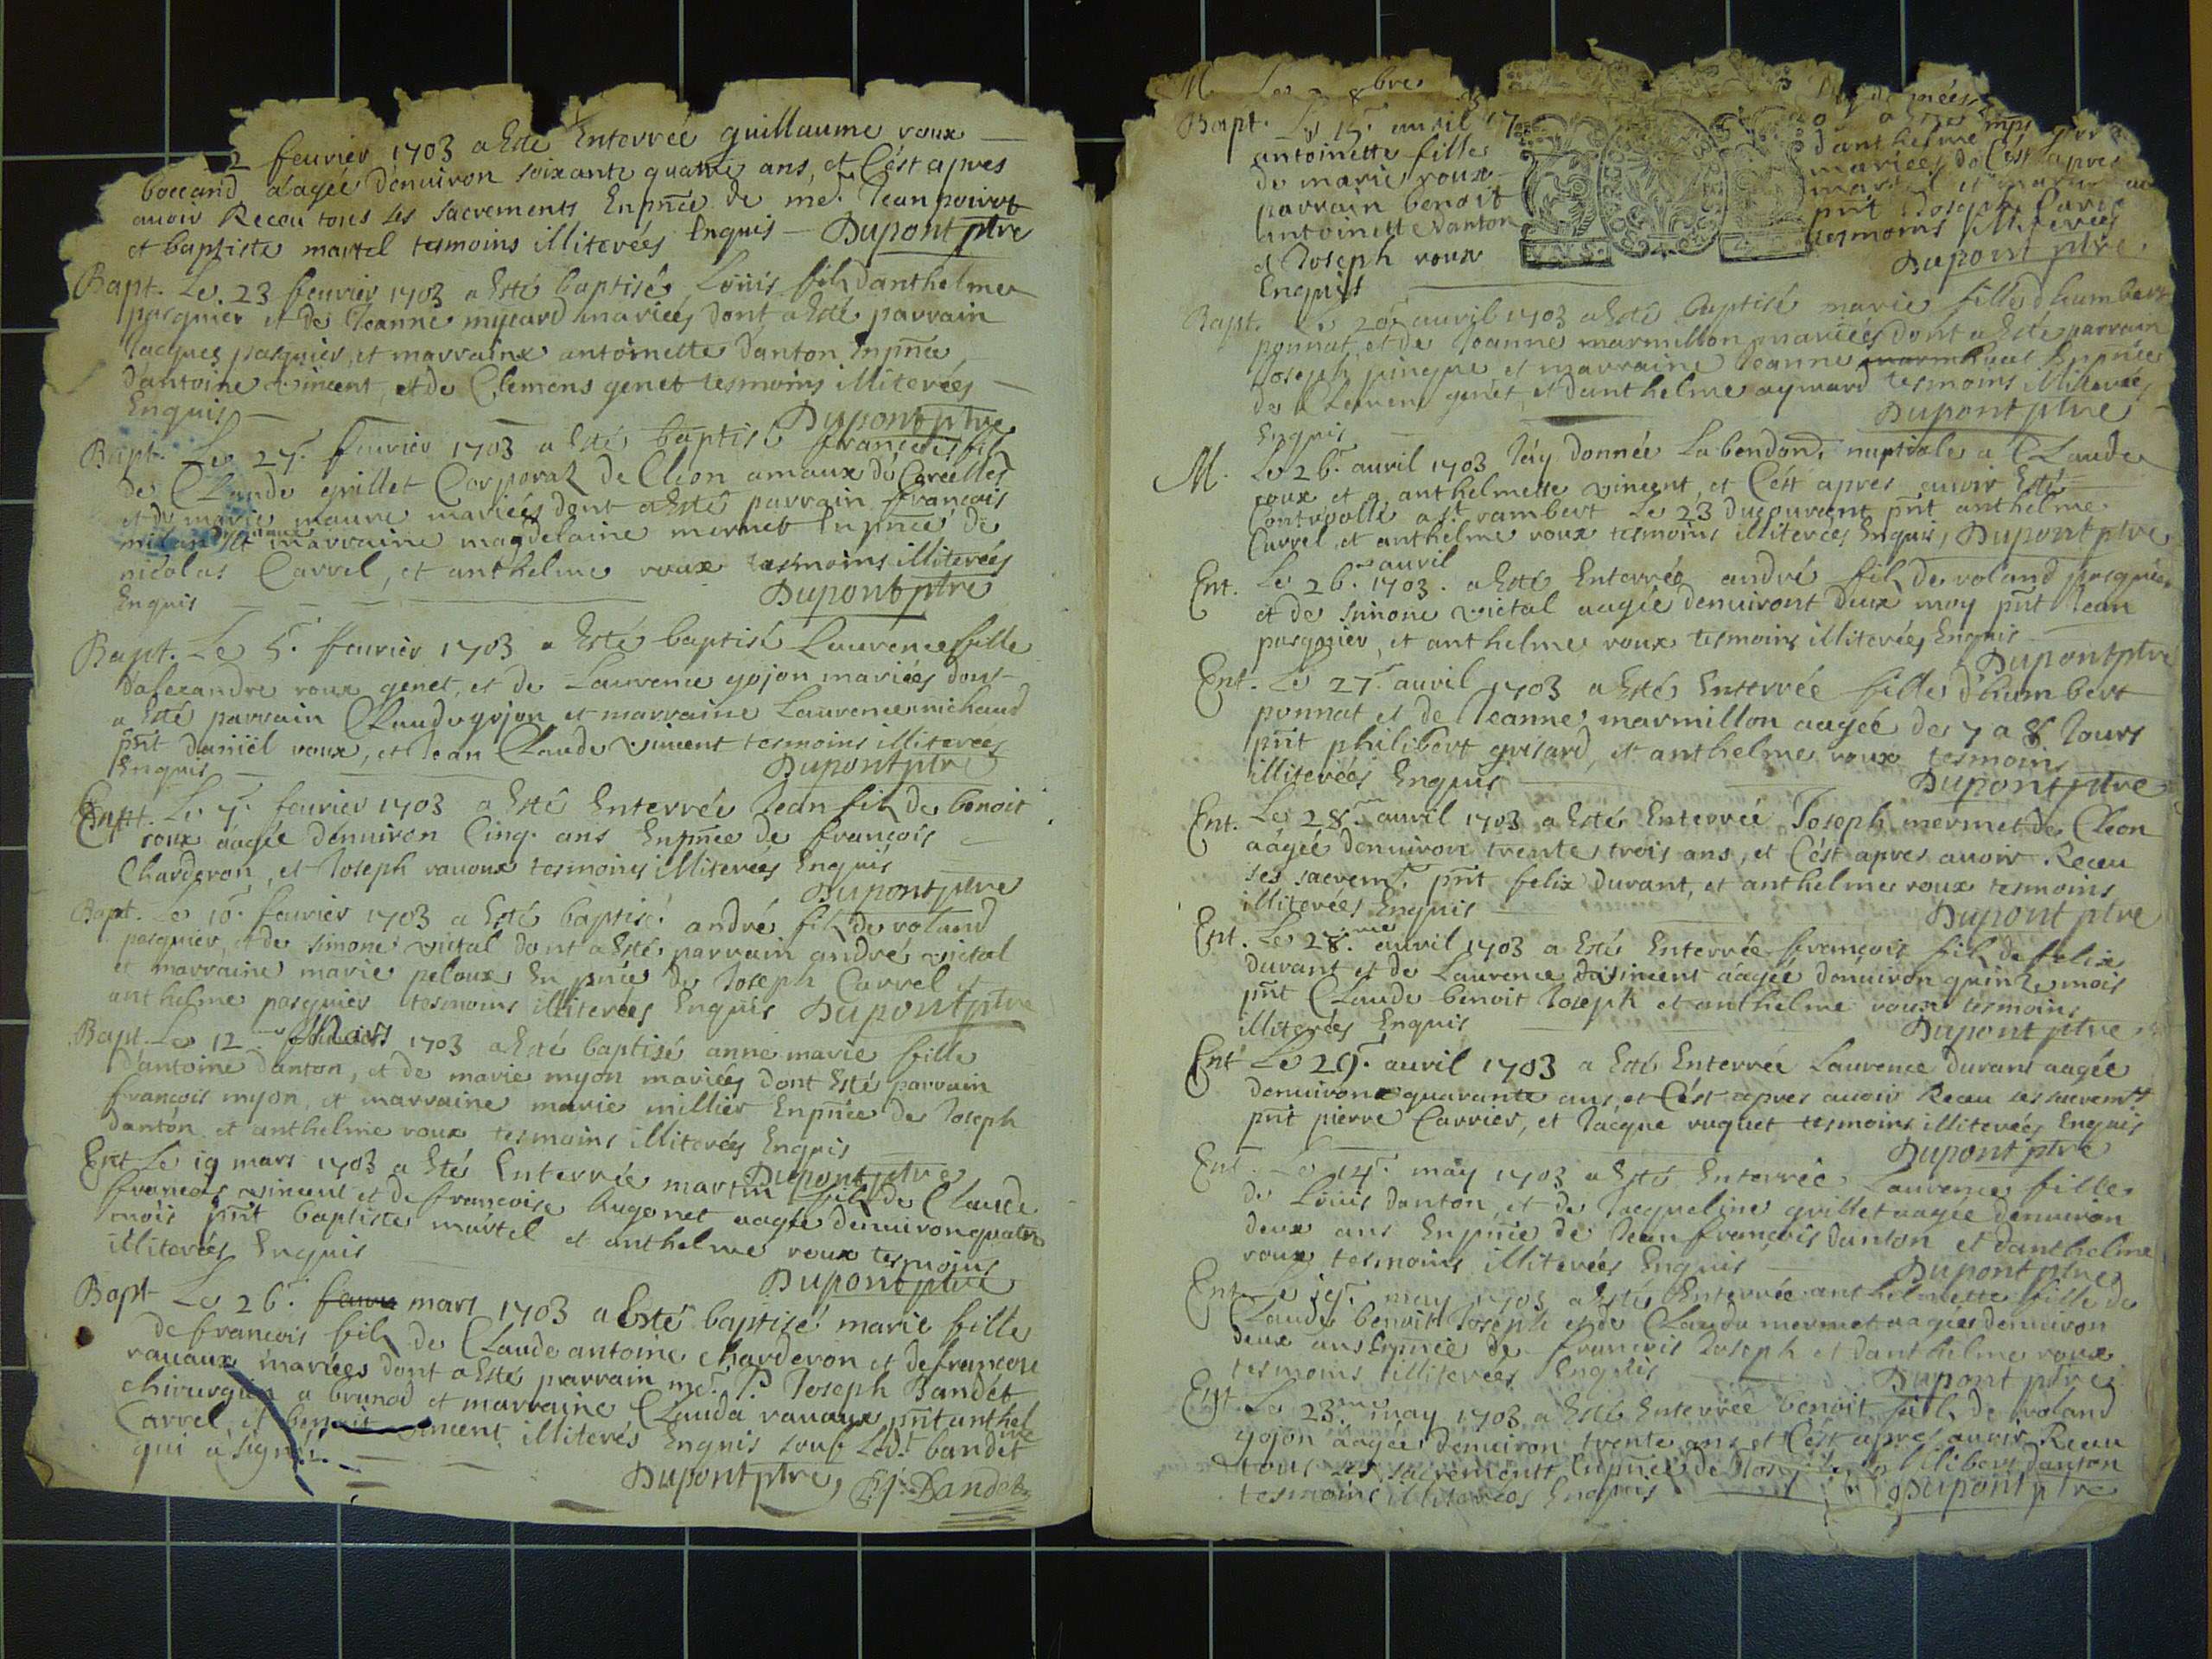 2 feurier 1703 a Esté Enterreé guillaume roux
boccand áageé d'enuiron soixante quatre ans, et C'ést apres
auoir Receu tous ses sacrements Enpñce de me. Jean poivot
et baptiste martel tesmoins illitereés Enquis Dupont ptre
Bapt. Le 23 feurier 1703 a Esté baptisé Loüis fils d'anthelme
pasquier et de Jeanne mycard marieés dont a Esté parrain
Jacques pasquier, et marraine antoinette danton Enpñce
d'antoine vincent, et de Clemens genet tesmoins illitereés
Enquis Dupont ptre
Bapt. Le 27. feurier 1703 a Esté baptisé francois fils
de Claude grillet Corporal de Cleon amaux de
et de marie maure marieés dont a Esté parrain francois
et marraine magdelaine mermet Enpñce de
nicolas Carrel, et anthelme roux tesmoins illitereés
Enquis Dupont ptre
Bapt. Le 5. feurier 1703 a Esté baptisé Laurence fille
d'alexandre roux genet, et de Laurence gojon marieés dont
a Esté parrain Claude gojon et marraine Laurence michaud
pñt daniël roux, et Jean Claude vincent tesmoins illitereés
Enquis Dupont ptre
Ent. Le 7. feurier 1703 a Esté Enterreé Jean fils de benoit
roux áageé d'enuiron Cinq ans Enpñce de francois
Charderon, et Joseph rauoux tesmoins illitereés Enquis
Dupont ptre
Bapt. Le 10. feurier 1703 a Esté baptisé andré fils de roland
pasquier, et de simone victal dont a Esté parrain andré victal
et marraine marie peloux En pñce de Joseph Carrel et
anthelme pasquier tesmoins illitereés Enquis Dupont ptre
Bapt. Le 12 Mars 1703 a Esté baptisé anne marie fille
d'antoine danton, et de marie myon marieés dont Esté parrain
francois myon, et marraine marie millier Enpñce de Joseph
danton et anthelme roux tesmoins illitereés Enquis
Dupont ptre
Ent Le 19 mars 1703 a Esté Enterreé martin fils de Claude
francois vincent et de francoise hugonet aageé denuiron quatre
mois pñt baptiste martel et anthelme roux tesmoins
illitereés Enquis Dupont ptre
Bapt Le 26. feuri mars 1703 a Esté baptisé marie fille
de francois fils de Claude antoine charderon et de francoise
rauaux marieés dont a Esté parrain me. P. Joseph Bandét
chirurgien a brunod et marraine Clauda rauaux pñt anthelme
Carrel, et benoit vincent illiterés Enquis sauf led. bandét
qui á signé
Dupont ptre, Bandét
M. Le bre
Bapt. Le 15. auril 17
antoinette fille
de marie roux
parrain benoit
antoinette danton
et Joseph roux
Enquis
d'anthelme
marieés C'ést apres
pñt Joseph
tesmoins illitereés
Dupont ptre
Bapt. Le 20. auril 1703 a Esté baptisé marie fille d'humbert
ponnat, et de Jeanne marmillon marieés dont a Esté parrain
Joseph et marraine Jeanne Enpñce
de Clemens genét, et d'anthelme aymard tesmoins illitereés
Enquis Dupont ptre
M. Le 26. auril 1703 J'áy donneé La bendon. nuptiale a Claude
roux et a anthelmette vincent, et C'ést apres auoir Esté
Controollé a st rambert Le 23 du courant pñt anthelme
Carrel, et anthelme roux tesmoins illitereés Enquis, Dupont ptre
Ent. Le 26. auril 1703. a Esté Enterreé andré fils de roland pasquier
et de simone victal aageé denuiront deux moy pñt Jean
pasquier, et anthelme roux tesmoins illitereés Enquis
Dupont ptre
Ent. Le 27. auril 1703 a Esté Enterreé fille d'humbert
ponnat et de Jeanne marmillon aageé de 7 a 8 Jours
pñt philibert grisard, et anthelme roux tesmoins
illitereés Enquis Dupont ptre
Ent. Le 28. auril 1703 a Esté Enterreé Joseph mermet de Cleon
áageé denuiron trente trois ans, et C'ést apres auoir Receu
ses sacremts. pñt felix durant, et anthelme roux tesmoins
illitereés Enquis Dupont ptre
Ent. Le 28.me auril 1703 a Esté Enterreé francois fils de felix
durant et de Laurence vincent aageé denuiron quinze mois
pñt Claude benoit Joseph et anthelme roux tesmoins
illitereés Enquis Dupont ptre
Ent Le 29. auril 1703 a Esté Enterreé Laurence durant aageé
denuiron quarante ans et C'ést apres auoir Receu ses sacremts
pñt pierre Carrier, et Jacque ruguet tesmoins illitereés Enquis
Dupont ptre
Ent. Le 14. may 1703 a Esté Enterreé Laurence fille
de Loüis danton, et de Jacqueline grillet aageé denuiron
deux ans Enpñce de Jean francois danton et d'anthelme
roux tesmoins illitereés Enquis Dupont ptre
Ent. Le 19. may 1703 a Esté Enterreé anthelmette fille de
Claude benoit Joseph et de Clauda mermet aageé denuiron
deux ans Enpñce de francois Joseph et d'anthelme roux
tesmoins illitereés Enquis Dupont ptre
Ent. Le 23.me may 1703 a Esté Enterreé benoit fils de roland
gojon aageé denuiron trente ans et C'ést apres auoir Receu
tous ses sacrements Enpñce de Joseph philibert danton
tesmoins illitereés Enquis Dupont ptre